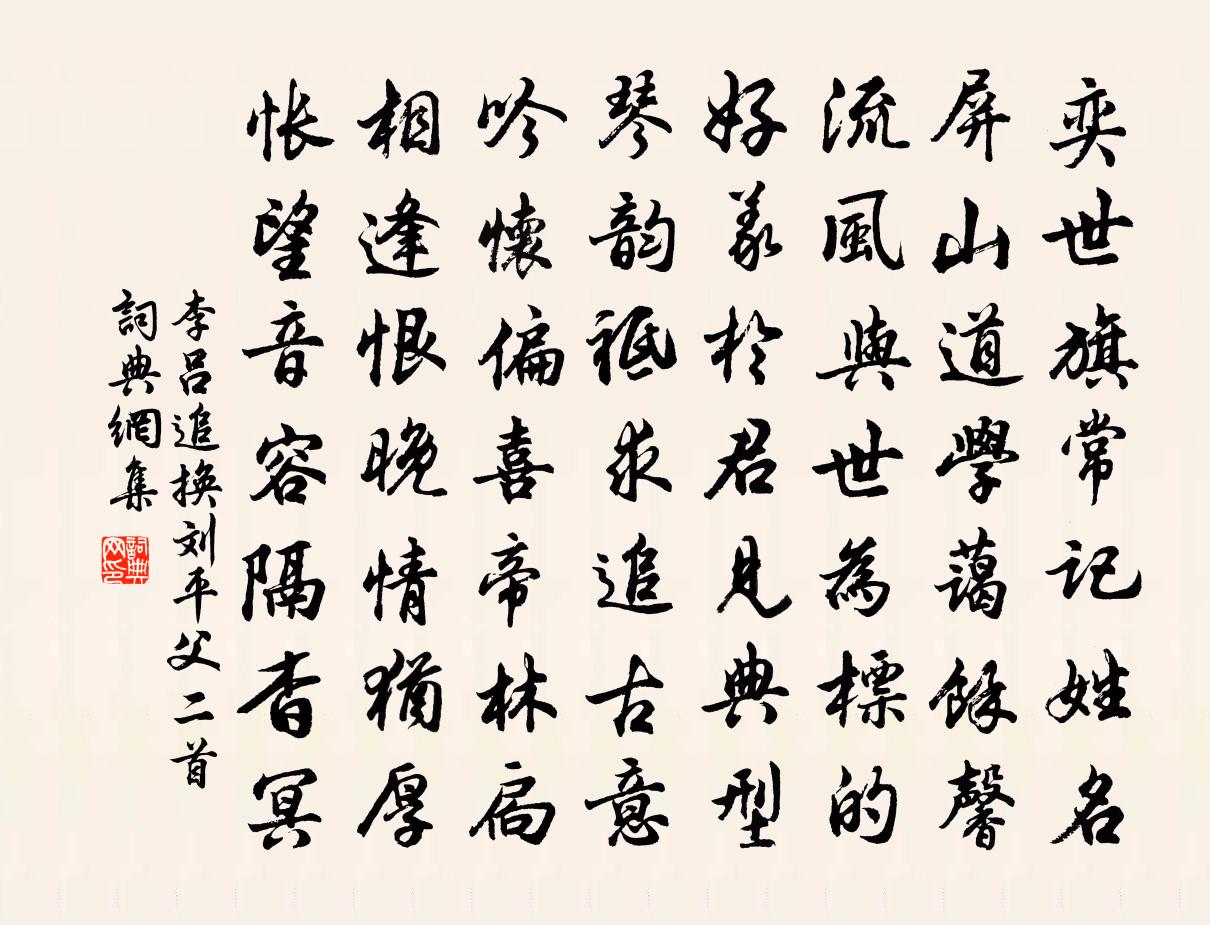 奕世旗常記姓名
屏山道學藹餘馨
流風與世為標的
好義於君見典型
琴韵祗求追古意
吟懷偏喜帝林扃
相逢恨晚情猶厚
悵望音容隔杳冥
李呂追換刘平父二首
詞典網集
詞典网印